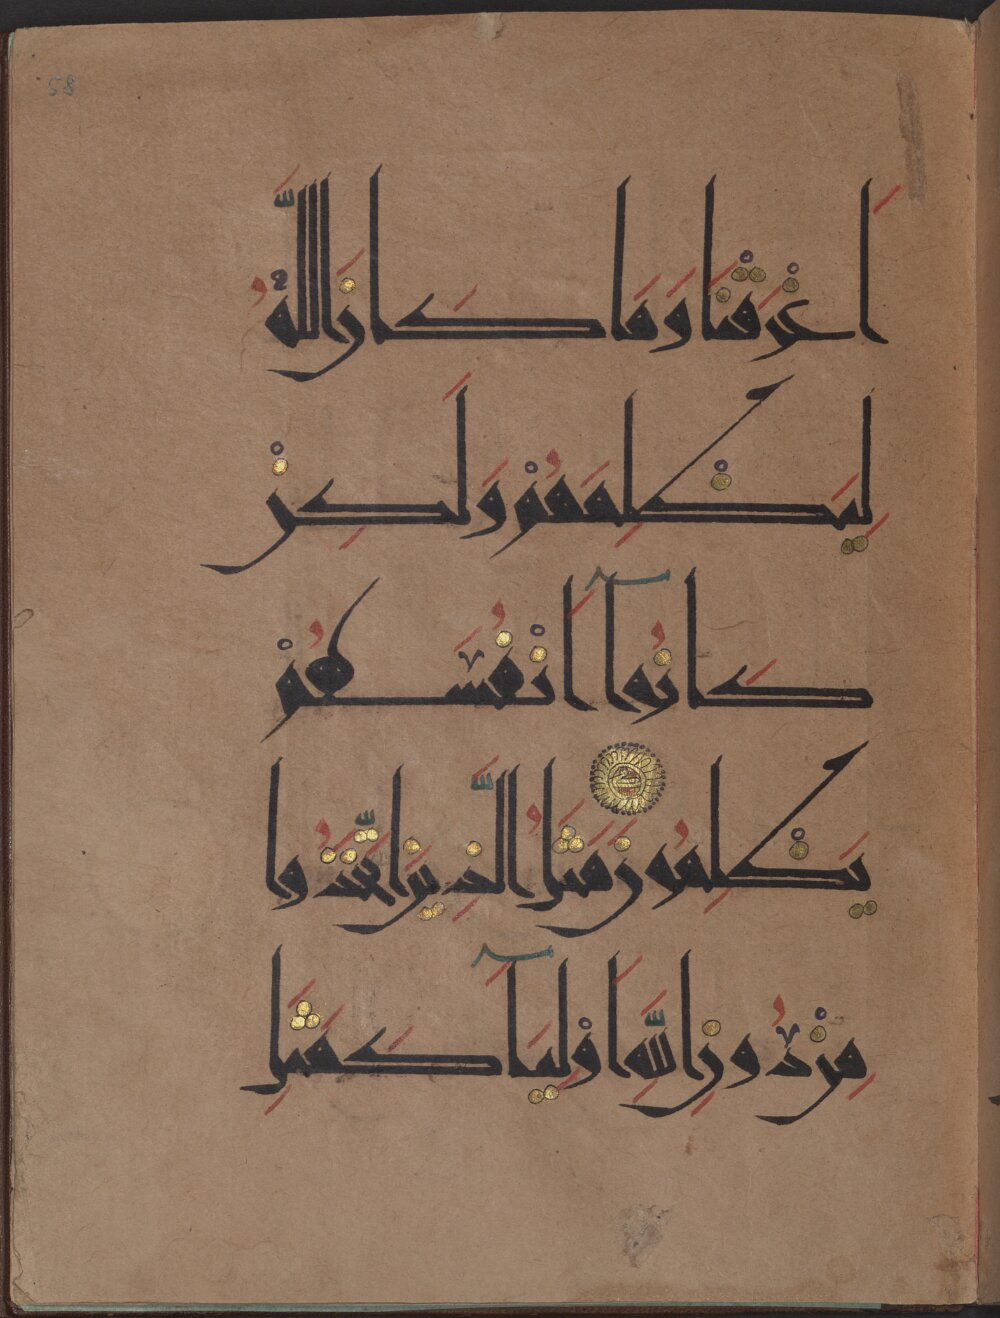 58
أَغْرَقْنَا وَمَا كَانَ اللَّهُ
لِيَظْلِمَهُمْ وَلَكِنْ
كَانُوآ أَنْفُسَهُمْ
يَظْلِمُونَ مَثَلُ الَّذِينَ اتَّخَذُوا
مِنْ دُونِ اللَّهِ أَوْلِيَآءَ كَمَثَلِ